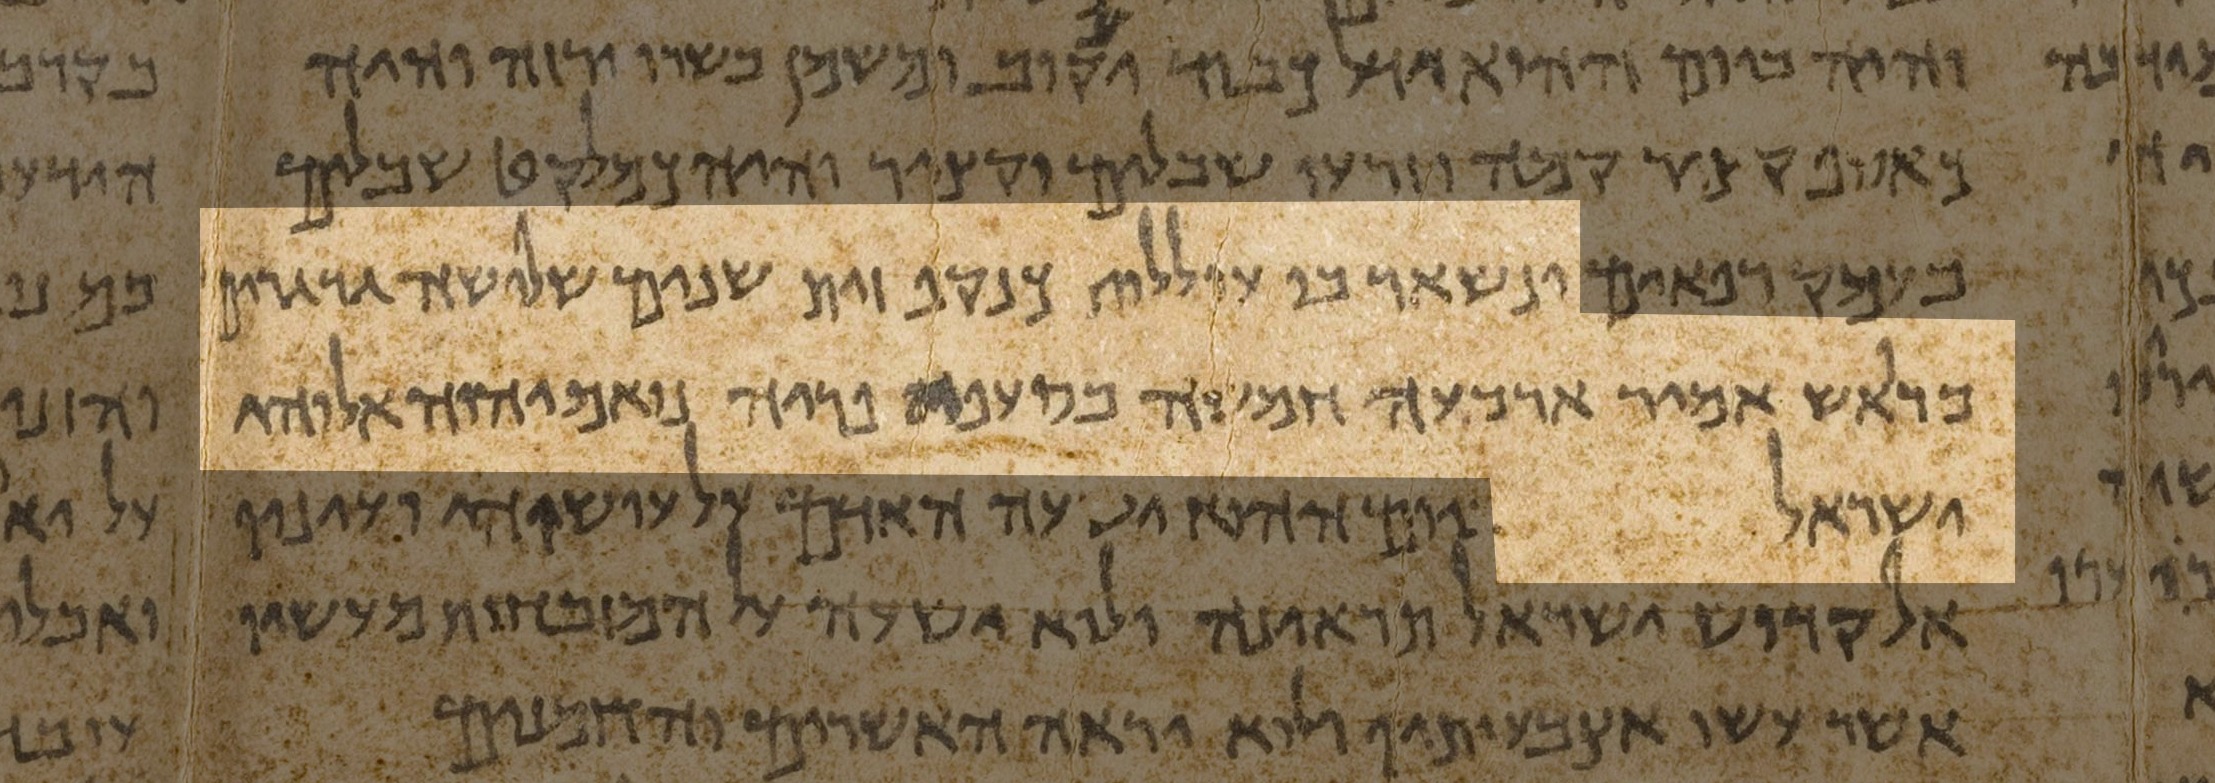 והיה ביום ההוא ידל כבוד יעקוב ומשמן בשרו ירזה והיה
כאוסף קציר קמה וזרעו שבלים יקציר והיה כמלקט שבלים
בעמק רפאים ונשאר בו עוללות כנקף זית שנים שלושה גרגרים
בראש אמיר ארבעה חמשה בסעפי פריה נואם יהוה אלוהי
ישראל ביום ההוא ישעה האדם על עושהו ועיניו
אל קדוש ישראל תראינה ולוא ישעה על המזבחות מעשי
אשר עשו אצבעותיו ולוא יראה האשרים והחמנים